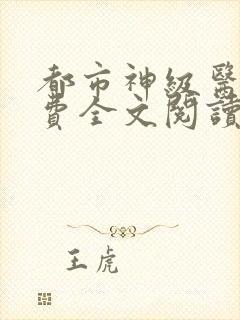 都市神級醫
費全文閱讀
王虎